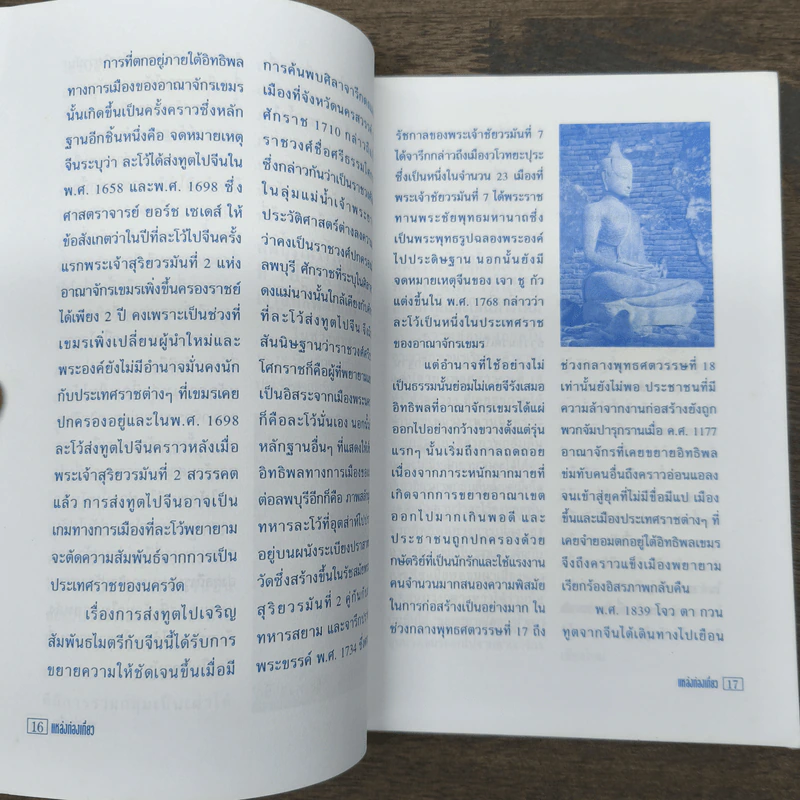 การที่ตกอยู่ภายใต้อิทธิพล
ทางการเมืองของอาณาจักรเขมร
นั้นเกิดขึ้นเป็นครั้งคราวซึ่งหลัก
ฐานอีกชิ้นหนึ่งคือ จดหมายเหตุ
จีนระบุว่า ละโว้ได้ส่งทูตไปจีนใน
พ.ศ. 1658 และพ.ศ. 1698 ซึ่ง
ศาสตราจารย์ ยอร์ช เซเดส์ ให้
ข้อสังเกตว่าในปีที่ละโว้ไปจีนครั้ง
แรกพระเจ้าสุริยวรมันที่ 2 แห่ง
อาณาจักรเขมรเพิ่งขึ้นครองราชย์
ได้เพียง 2 ปี คงเพราะเป็นช่วงที่
เขมรเพิ่งเปลี่ยนผู้นำใหม่และ
พระองค์ยังไม่มีอำนาจมั่นคงนัก
กับประเทศราชต่างๆ ที่เขมรเคย
ปกครองอยู่และในพ.ศ. 1698
ละโว้ส่งทูตไปจีนคราวหลังเมื่อ
พระเจ้าสุริยวรมันที่ 2 สวรรคต
แล้ว การส่งทูตไปจีนอาจเป็น
เกมทางการเมืองที่ละโว้พยายาม
จะตัดความสัมพันธ์จากการเป็น
ประเทศราชของนครวัด
เรื่องการส่งทูตไปเจริญ
สัมพันธไมตรีกับจีนนี้ได้รับการ
ขยายความให้ชัดเจนขึ้นเมื่อมี
การค้นพบศิลาจารึก
เมืองที่จังหวัดนครสวรรค์
ศักราช 1710 กล่าวถึง
ราชวงศ์ชื่อศรีธรรม
ซึ่งกล่าวกันว่าเป็นราชวงศ์
ในลุ่มแม่น้ำเจ้าพระยา
ประวัติศาสตร์ต่างลงความ
ว่าคงเป็นราชวงศ์ปกครอง
ลพบุรี ศักราชที่ระบุในศิลา
ดงแม่นางนั้นใกล้เคียงกับ
ที่ละโว้ส่งทูตไปจีน จึง
สันนิษฐานว่าราชวงศ์ศรี
โศกราชก็คือผู้ที่พยายาม
เป็นอิสระจากเมืองพระนคร
ก็คือละโว้นั่นเอง นอกนั้น
หลักฐานอื่นๆ ที่แสดงให้เห็น
อิทธิพลทางการเมืองของ
ต่อลพบุรีอีกก็คือ ภาพสลัก
ทหารละโว้ที่อุตส่าห์ไป
อยู่บนผนังระเบียงปราสาท
วัดซึ่งสร้างขึ้นในรัชสมัย
สุริยวรมันที่ 2 คู่กันกับ
ทหารสยาม และจารึก
พระขรรค์ พ.ศ. 1734 ซึ่ง
16 แหล่งท่องเที่ยว
รัชกาลของพระเจ้าชัยวรมันที่ 7
ได้จารึกกล่าวถึงเมืองวโวทยะปุระ
ซึ่งเป็นหนึ่งในจำนวน 23 เมืองที่
พระเจ้าชัยวรมันที่ 7 ได้พระราช
ทานพระชัยพุทธมหานาถซึ่ง
เป็นพระพุทธรูปฉลองพระองค์
ไปประดิษฐาน นอกนั้นยังมี
จดหมายเหตุจีนของ เจา ชู กัว
แต่งขึ้นใน พ.ศ. 1768 กล่าวว่า
ละโว้เป็นหนึ่งในประเทศราช
ของอาณาจักรเขมร
แต่อำนาจที่ใช้อย่างไม่
เป็นธรรมนั้นย่อมไม่เคยจีรังเสมอ
อิทธิพลที่อาณาจักรเขมรได้แผ่
ออกไปอย่างกว้างขวางตั้งแต่รุ่น
แรกๆ นั้นเริ่มถึงกาลถดถอย
เนื่องจากภาระหนักมากมายที่
เกิดจากการขยายอาณาเขต
ออกไปมากเกินพอดี และ
ประชาชนถูกปกครองด้วย
กษัตริย์ที่เป็นนักรักและใช้แรงงาน
คนจำนวนมากสนองความพิสมัย
ในการก่อสร้างเป็นอย่างมาก ใน
ช่วงกลางพุทธศตวรรษที่ 17 ถึง
ช่วงกลางพุทธศตวรรษที่ 18
เท่านั้นยังไม่พอ ประชาชนที่มี
ความล้าจากงานก่อสร้างยังถูก
พวกจัมปารุกรานเมื่อ ค.ศ. 1177
อาณาจักรที่เคยขยายอิทธิพล
ข่มทับคนอื่นถึงคราวอ่อนแอลง
จนเข้าสู่ยุคที่ไม่มีชื่อมีแป เมือง
ขึ้นและเมืองประเทศราชต่างๆ ที่
เคยจำยอมตกอยู่ใต้อิทธิพลเขมร
จึงถึงคราวแข็งเมืองพยายาม
เรียกร้องอิสรภาพกลับคืน
พ.ศ. 1839 โจว ตา กวน
ทูตจากจีนได้เดินทางไปเยือน
แหล่งท่องเที่ยว 17